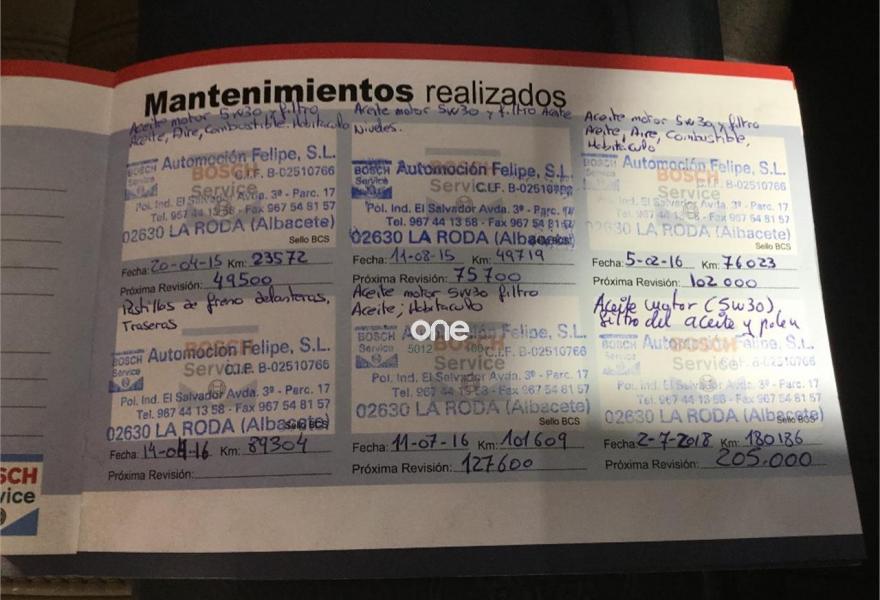 Mantenimientos realizados
Aceite motor 5w30 y filtro
Aceite, Aire, Combustible, Habitaculo
BOSCH
Service
Automoción Felipe, S.L.
C.I.F. B-02510766
Pol. Ind. El Salvador Avda. 3ª - Parc. 17
Tel. 967 44 13 58 - Fax 967 54 81 57
02630 LA RODA (Albacete)
Sello BCS
Fecha: 20-04-15 Km: 23572
Próxima Revisión: 49500
Aceite motor 5w30 y filtro Aceite
Niveles.
BOSCH
Service
Automoción Felipe, S.L.
C.I.F. B-02510766
Pol. Ind. El Salvador Avda. 3ª - Parc. 17
Tel. 967 44 13 58 - Fax 967 54 81 57
02630 LA RODA (Albacete)
Fecha: 11-08-15 Km: 49719
Próxima Revisión: 75700
Aceite motor 5w30 y filtro
Aceite, Aire, Combustible,
Habitáculo
BOSCH
Service
Automoción Felipe, S.L.
C.I.F. B-02510766
Pol. Ind. El Salvador Avda. 3ª - Parc. 17
Tel. 967 44 13 58 - Fax 967 54 81 57
02630 LA RODA (Albacete)
Sello BCS
Fecha: 5-02-16 Km: 76023
Próxima Revisión: 102000
Pastillas de freno delanteras,
Traseras
BOSCH
Service
Automoción Felipe, S.L.
C.I.F. B-02510766
Pol. Ind. El Salvador Avda. 3ª - Parc. 17
Tel. 967 44 13 58 - Fax 967 54 81 57
02630 LA RODA (Albacete)
Sello BCS
Fecha: 14-04-16 Km: 89304
Próxima Revisión:
Aceite motor 5w30 filtro
Aceite, Habitaculo
one
BOSCH
Service
Automoción Felipe, S.L.
5012
C.I.F. B-02510766
Pol. Ind. El Salvador Avda. 3ª - Parc. 17
Tel. 967 44 13 58 - Fax 967 54 81 57
02630 LA RODA (Albacete)
Sello BCS
Fecha: 11-07-16 Km: 101609
Próxima Revisión: 127600
Aceite motor (5w30)
filtro del aceite y polen
BOSCH
Service
Automoción Felipe, S.L.
C.I.F. B-02510766
Pol. Ind. El Salvador Avda. 3ª - Parc. 17
Tel. 967 44 13 58 - Fax 967 54 81 57
02630 LA RODA (Albacete)
Sello BCS
Fecha: 2-7-2018 Km: 180186
Próxima Revisión: 205.000